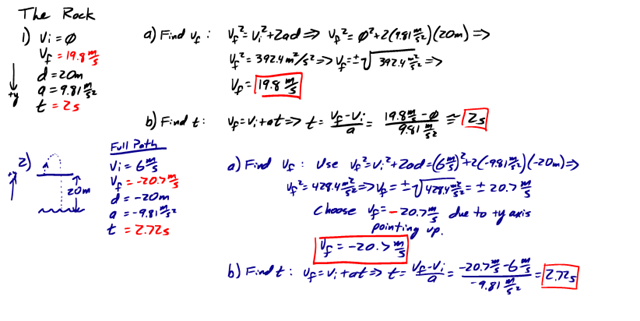 The Rock
1) Vi = Ø
Vf = 19.8 m/s
d = 20m
a = 9.81 m/s²
t = 2s
+y
a) Find Vf : Vf² = Vi² + 2ad ⇒ Vf² = Ø² + 2(9.81 m/s²)(20m) ⇒
Vf² = 392.4 m²/s² ⇒ Vf = ±√392.4 m²/s² ⇒
Vf = 19.8 m/s
b) Find t : Vf = Vi + at ⇒ t = (Vf - Vi)/a = (19.8 m/s - Ø)/(9.81 m/s²) ≅ 2s
2)
+y
20m
Full Path
Vi = 6 m/s
Vf = -20.7 m/s
d = -20m
a = -9.81 m/s²
t = 2.72s
a) Find Vf : Use Vf² = Vi² + 2ad = (6 m/s)² + 2(-9.81 m/s²)(-20m) ⇒
Vf² = 428.4 m²/s² ⇒ Vf = ±√428.4 m²/s² = ± 20.7 m/s
Choose Vf = -20.7 m/s due to +y axis
pointing up.
Vf = -20.7 m/s
b) Find t : Vf = Vi + at ⇒ t = (Vf - Vi)/a = (-20.7 m/s - 6 m/s)/(-9.81 m/s²) = 2.72s